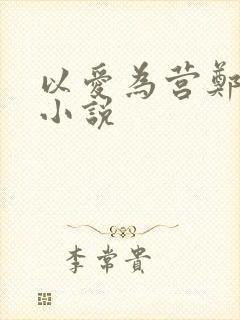 以愛為营鄭
小説
李常貴